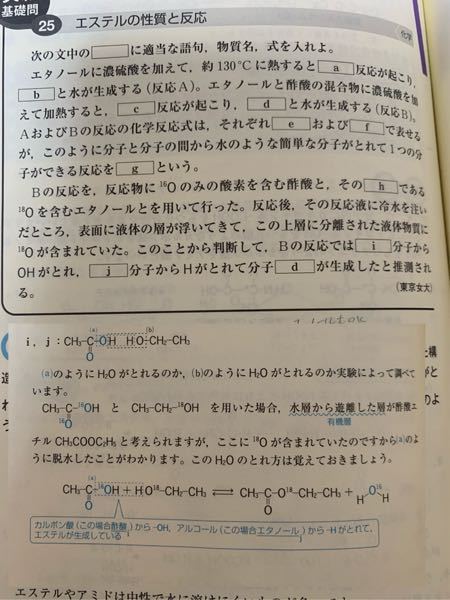 基礎問
25
エステルの性質と反応
化学
次の文中の□に適当な語句，物質名，式を入れよ。
エタノールに濃硫酸を加えて，約130℃に熱すると a 反応が起こり，
b と水が生成する (反応A)。エタノールと酢酸の混合物に濃硫酸を加
えて加熱すると， c 反応が起こり， d と水が生成する (反応B)。
AおよびBの反応の化学反応式は，それぞれ e および f で表せる
が，このように分子と分子の間から水のような簡単な分子がとれて1つの分
子ができる反応を g という。
Bの反応を，反応物に¹⁶Oのみの酸素を含む酢酸と，その h である
¹⁸Oを含むエタノールとを用いて行った。反応後，その反応液に冷水を注い
だところ，表面に液体の層が浮いてきて，この上層に分離された液体物質に
¹⁸Oが含まれていた。このことから判断して，Bの反応では i 分子から
OHがとれ， j 分子からHがとれて分子 d が生成したと推測され
る。
(東京女大)
i, j : CH₃-C-OH HO-CH₂-CH₃
(a) (b)
O
(a)のようにH₂Oがとれるのか，(b)のようにH₂Oがとれるのか実験によって調べて
います。
CH₃-C-¹⁶OH と CH₃-CH₂-¹⁸OH を用いた場合，水層から遊離した層が酢酸エ
¹⁶O
有機層
チル CH₃COOC₂H₅ と考えられますが，ここに ¹⁸O が含まれていたのですから(a)のよ
うに脱水したことがわかります。このH₂Oのとれ方は覚えておきましょう。
(a)
CH₃-C-¹⁶OH + H O¹⁸-CH₂-CH₃ ⇌ CH₃-C-O¹⁸-CH₂-CH₃ + H O¹⁶ H
O O
カルボン酸(この場合酢酸)から -OH，アルコール(この場合エタノール)から -H がとれて，
エステルが生成している
エステルやアミドは中性で水に溶けにくい